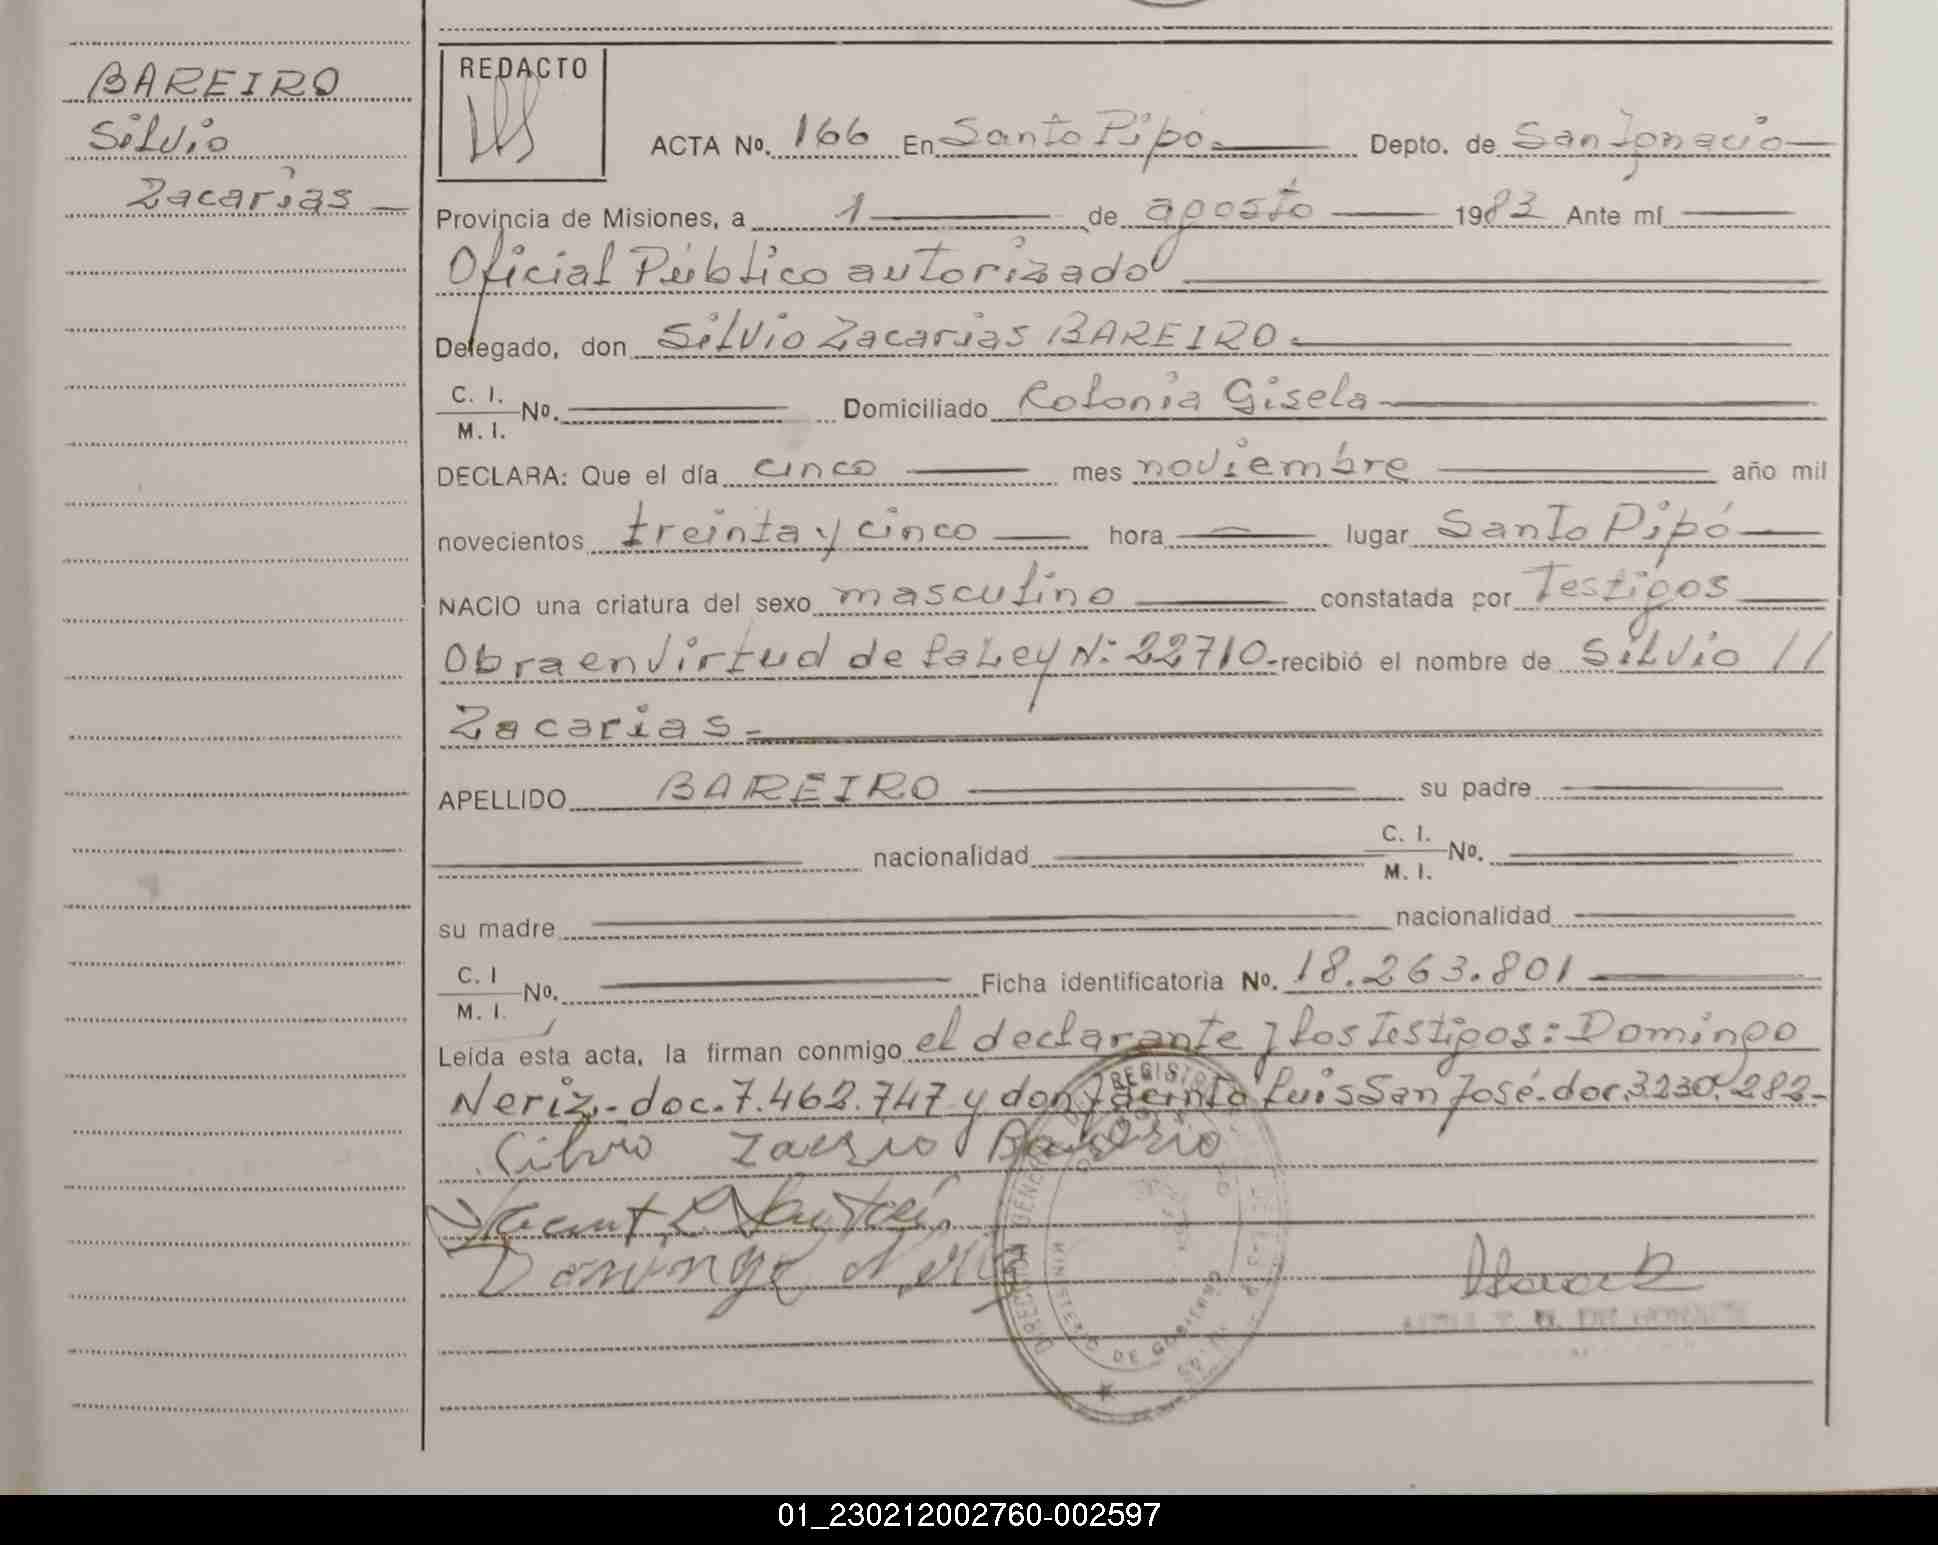 BAREIRO
Silvio
Zacarias
REDACTO
ACTA No. 166 En Santo Pipó Depto. de San Ignacio
Provincia de Misiones, a 1 de agosto 1983 Ante mí
Oficial Público autorizado
Delegado, don Silvio Zacarias BAREIRO.
C. I.
M. I. No. Domiciliado Colonia Gisela
DECLARA: Que el día cinco mes noviembre año mil
novecientos treinta y cinco hora lugar Santo Pipó
NACIO una criatura del sexo masculino constatada por Testigos
Obra en virtud de la Ley Nº 22710.- recibió el nombre de Silvio //
Zacarias.-
APELLIDO BAREIRO su padre
nacionalidad C. I. M. I. No.
su madre nacionalidad
C. I M. I. No. Ficha identificatoria No. 18.263.801
Leída esta acta, la firman conmigo el declarante y los Testigos: Domingo
Neriz.- doc. 7.462.747 y don Jacinto Luis San José.- doc. 3.230.282-
Silvio Bareirio
Domingo Neriz
DIRECCION GENERAL REGISTRO
MINISTERIO DE GOBIERNO
01_230212002760-002597